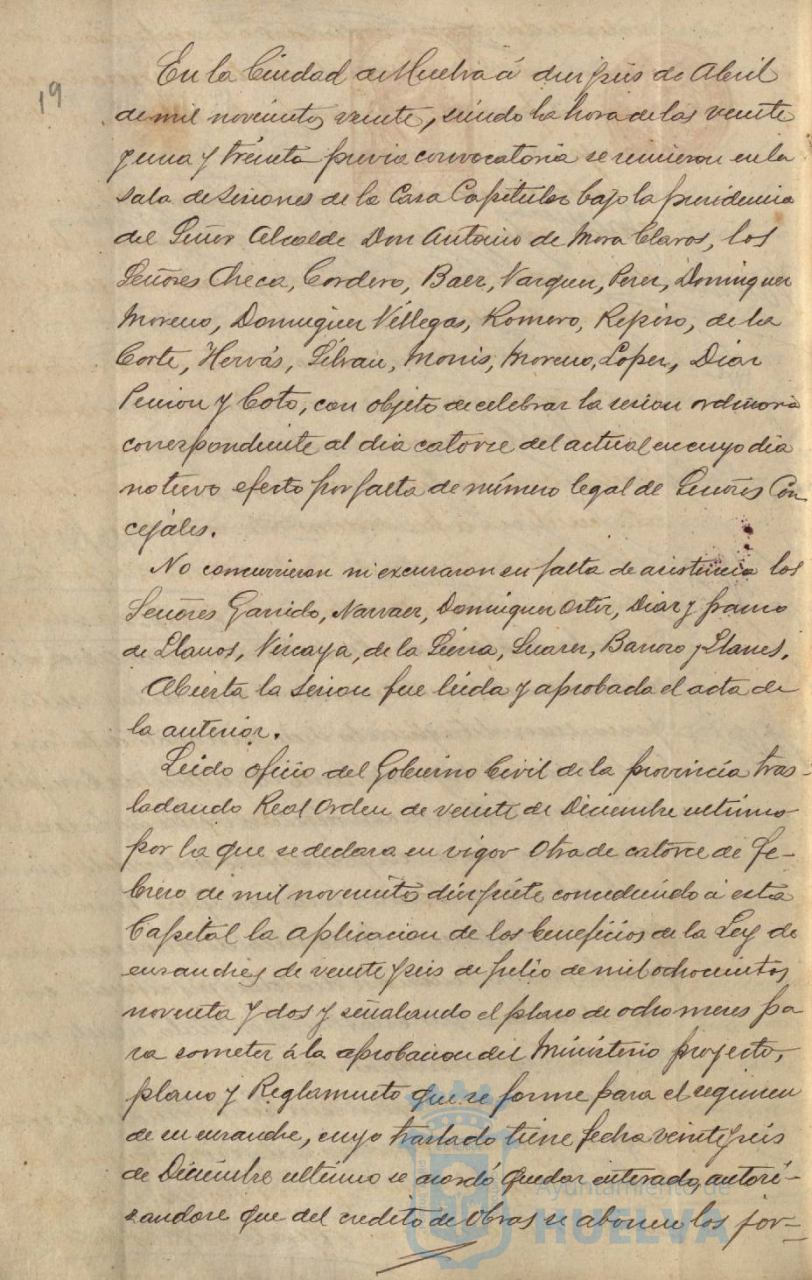 19
En la Ciudad de Huelva á diez y seis de Abril
de mil novecientos veinte, siendo la hora de las veinte
y una y treinta previa convocatoria se reunieron en la
Sala de Sesiones de la Casa Capitular bajo la presidencia
del Señor Alcalde Don Antonio de Mora Claros, los
Señores Checa, Cordero, Baez, Vazquez, Perez, Dominguez
Moreno, Dominguez Villegas, Romero, Repiso, de la
Corte, Hervás, Silvan, Monis, Moreno, Lopez, Diaz
Pinzon y Coto, con objeto de celebrar la sesion ordinaria
correspondiente al dia catorce del actual en cuyo dia
no tuvo efecto por falta de número legal de Señores Con
cejales.
No concurrieron ni excusaron su falta de asistencia los
Señores Garrido, Narvaez, Dominguez Ortiz, Diaz y franco
de Llanos, Vizcaya, de la Sierra, Suarez, Banozo y Llanes.
Abierta la sesion fue leida y aprobada el acta de
la anterior.
Leido oficio del Gobierno Civil de la provincia tras-
ladando Real Orden de veinte de Diciembre ultimo
por la que se declara en vigor Otra de catorce de fe-
brero de mil novecientos diez y siete concediendo á esta
Capital la aplicacion de los beneficios de la Ley de
ensanches de veinte y seis de julio de mil ochocientos
noventa y dos y señalando el plazo de ocho meses pa
ra someter á la aprobacion del Ministerio proyecto,
plano y Reglamento que se forme para el regimen
de su ensanche, cuyo traslado tiene fecha veinte y seis
de Diciembre ultimo se acordó quedar enterado, autori-
zandose que del credito de Obras se abonen los jor-
Ayuntamiento de
HUELVA